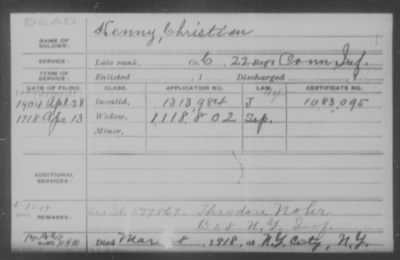 DEAD
NAME OF SOLDIER: Henny, Christian
SERVICE: Late rank, Co. C, 22 Reg't Conn. Inf.
TERM OF SERVICE: Enlisted , 1 Discharged , 1
DATE OF FILING. CLASS. APPLICATION NO. LAW. CERTIFICATE NO.
1904 Apl 28 Invalid, 1313,984 J 1083,095
1918 Apr 13 Widow, 1,118,802 Sep.
Minor,
ADDITIONAL SERVICES:
REMARKS: 879867 Theodore Nohr
B 58 N.Y. Inf.
Died Mar 8, 1918, at N.Y. City, N.Y.